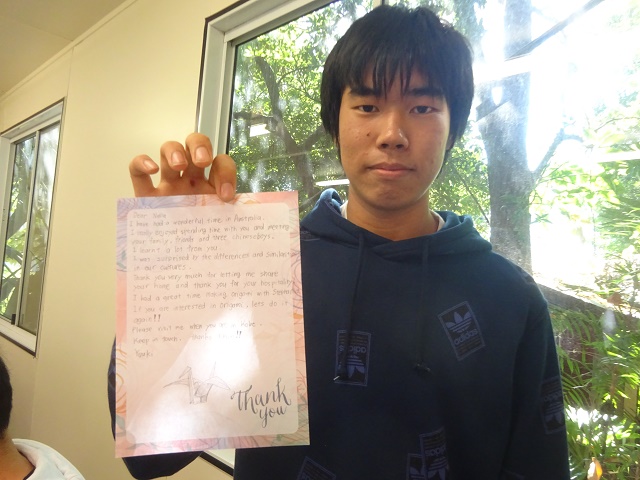 I have had a wonderful time in Australia.
I really enjoyed spending time with you and meeting
your family, friends and three
I learnt a lot from you.
I was surprised to the differences and
in our cultures.
Thank you very much for letting me share
your home and thank you for your hospitality
I had a great time making origami with
If you are interested in origami, let's do it
again!!
Please visit me when you
Keep in touch.
Thank
you
adidas